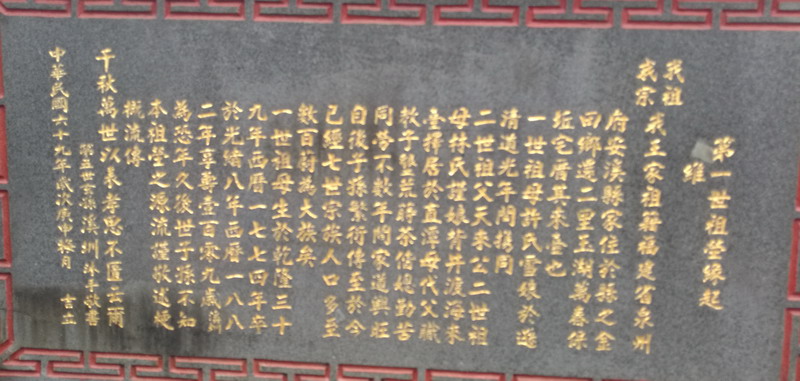 第一世祖塋緣起
維
我祖
我宗 我王家祖籍福建省泉州
府安溪縣家住於縣之金
田鄉還二里玉湖萬春保
坵宅厝其來臺也
一世祖母許氏雪緣於遜
清道光年間携同
二世祖父天來公二世祖
母林氏謹娘背井渡海來
臺擇居於直潭母代父職
教子墾荒時茶信媳勤苦
同勞不數年間家道興旺
自後子孫繁衍傳至於今
已經七世宗族人口多至
數百尉為大族矣
一世祖母生於乾隆三十
九年西曆一七七四年卒
於光緒八年西曆一八八
二年享壽壹百零九歲
為恐年久後世子孫不知
本祖塋之源流謹敬述梗
概流傳
千秋萬世以表孝思不匱云爾
五世玄孫溪圳
中華民國六十九年歲次庚申梅月 吉立